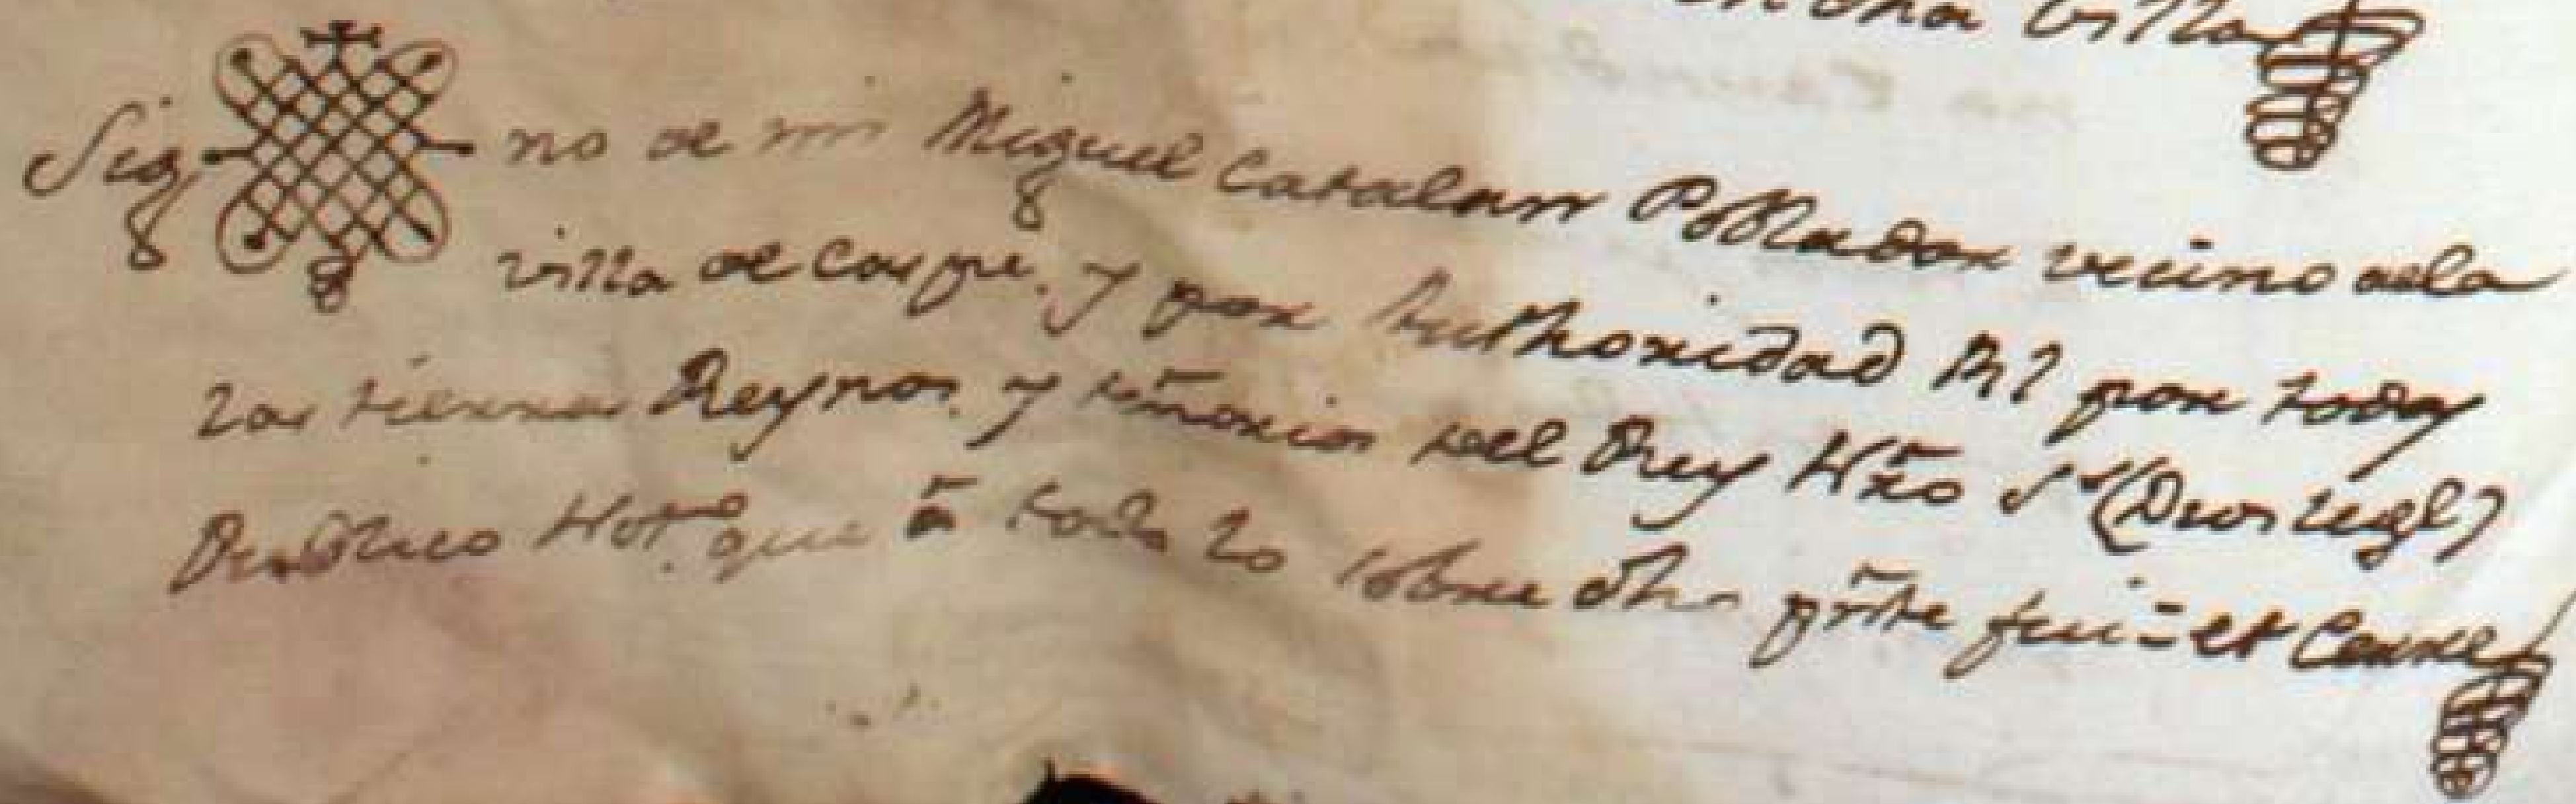 en dha villa
Sig no de mi Miguel Catalan Poblador vecino dela
villa de Caspe. y por Authoridad Rl por todas
las tierras Reynos. y señorios del Rey Nro Sr (Dios lege)
Publico Notº. que â todo lo sobre dho prnte fui = et Cerre